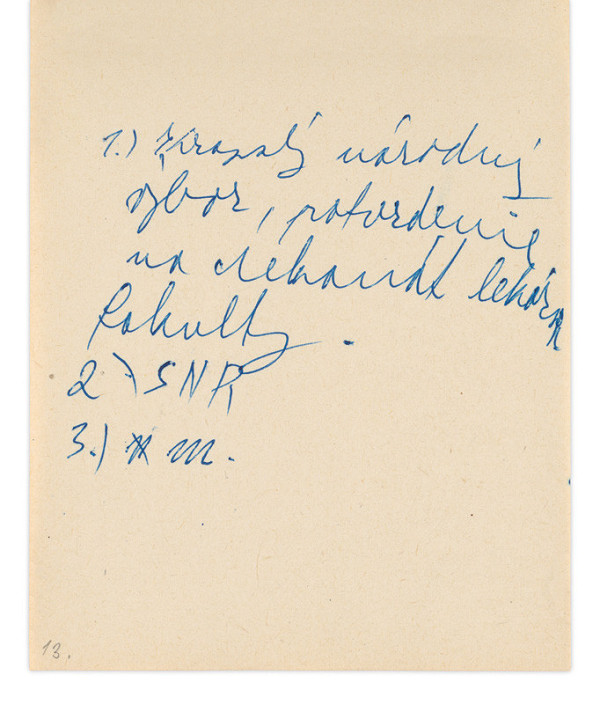 1.) Krajský národný
výbor, potvrdenie
na dekanát lekár.
fakulty.
2) SNR
3.) m.
13.